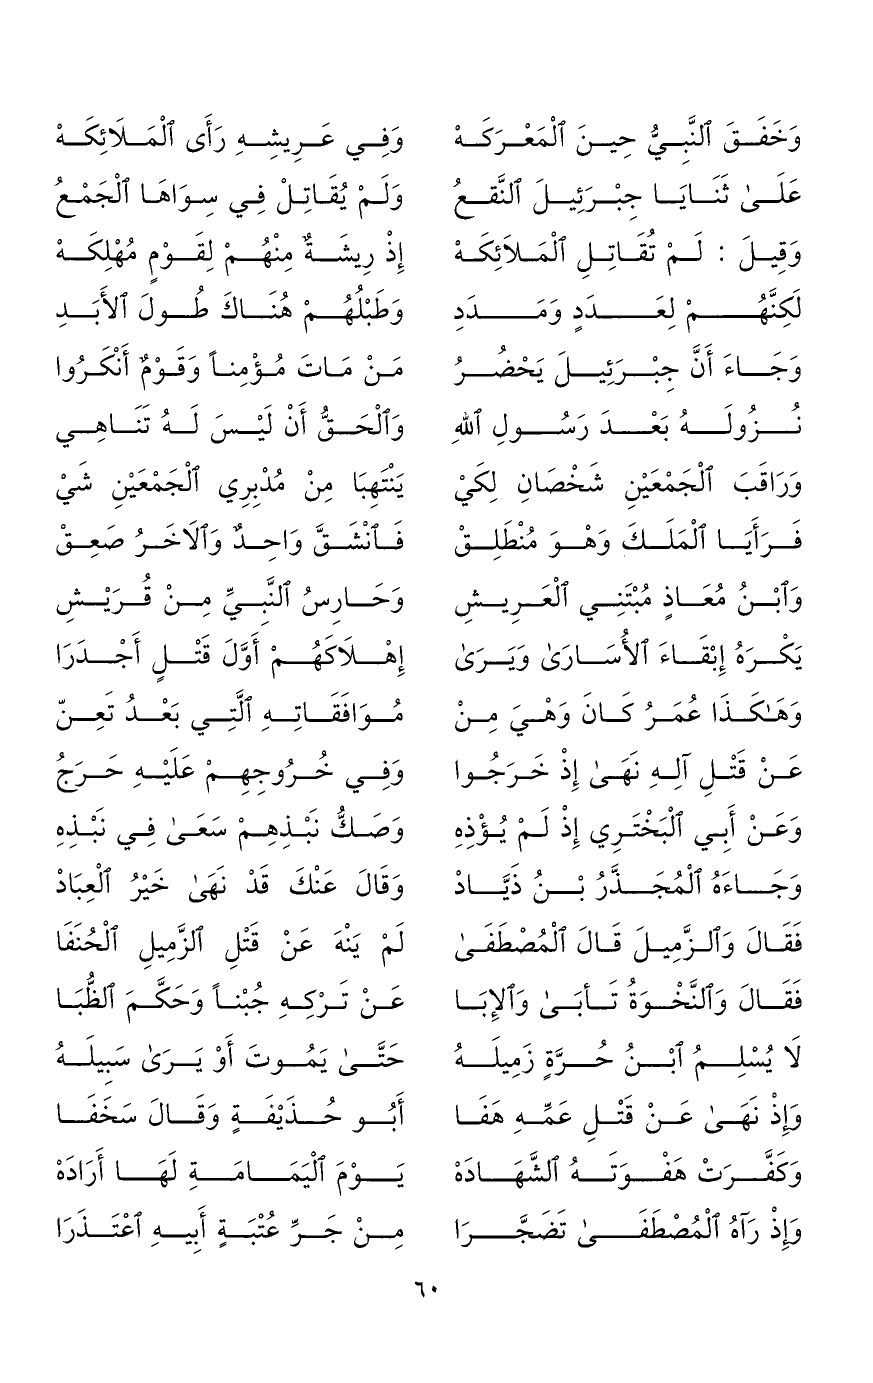 وَخَفَقَ ٱلنَّبِيُّ حِينَ ٱلْمَعْرَكَهْ وَفِي عَرِيشِهِ رَأَى ٱلْمَلَائِكَهْ
عَلَىٰ ثَنَايَا جِبْرَئِيلَ ٱلنَّقْعُ وَلَمْ يُقَاتِلْ فِي سِوَاهَا ٱلْجَمْعُ
وَقِيلَ : لَمْ تُقَاتِلِ ٱلْمَلَائِكَهْ إِذْ رِيشَةٌ مِنْهُمْ لِقَوْمٍ مُهْلِكَهْ
لَكِنَّهُمْ لِعَدَدٍ وَمَدَدِ وَطَبْلُهُمْ هُنَاكَ طُولَ ٱلأَبَدِ
وَجَاءَ أَنَّ جِبْرَئِيلَ يَحْضُرُ مَنْ مَاتَ مُؤْمِناً وَقَوْمٌ أَنْكَرُوا
نُزُولَهُ بَعْدَ رَسُولِ ٱللهِ وَٱلْحَقُّ أَنْ لَيْسَ لَهُ تَنَاهِي
وَرَاقَبَ ٱلْجَمْعَيْنِ شَخْصَانِ لِكَيْ يَنْتَهِبَا مِنْ مُدْبِرِي ٱلْجَمْعَيْنِ شَيْ
فَرَأَيَا ٱلْمَلَكَ وَهْوَ مُنْطَلِقْ فَٱنْشَقَّ وَاحِدٌ وَٱلآخَرُ صَعِقْ
وَٱبْنُ مُعَاذٍ مُبْتَنِي ٱلْعَرِيشِ وَحَارِسُ ٱلنَّبِيِّ مِنْ قُرَيْشِ
يَكْرَهُ إِبْقَاءَ ٱلأُسَارَىٰ وَيَرَىٰ إِهْلَاكَهُمْ أَوَّلَ قَتْلٍ أَجْدَرَا
وَهَـٰكَذَا عُمَرُ كَانَ وَهْيَ مِنْ مُوَافَقَاتِهِ ٱلَّتِي بَعْدُ تَعِنّ
عَنْ قَتْلِ آلِهِ نَهَىٰ إِذْ خَرَجُوا وَفِي خُرُوجِهِمْ عَلَيْهِ حَرَجُ
وَعَنْ أَبِي ٱلْبَخْتَرِي إِذْ لَمْ يُؤْذِهِ وَصَكُّ نَبْذِهِمْ سَعَىٰ فِي نَبْذِهِ
وَجَاءَهُ ٱلْمُجَذَّرُ بْنُ ذَيَّادْ وَقَالَ عَنْكَ قَدْ نَهَىٰ خَيْرُ ٱلْعِبَادْ
فَقَالَ وَٱلزَّمِيلَ قَالَ ٱلْمُصْطَفَىٰ لَمْ يَنْهَ عَنْ قَتْلِ ٱلزَّمِيلِ ٱلْحُنَفَا
فَقَالَ وَٱلنَّخْوَةُ تَأبَىٰ وَٱلإِبَا عَنْ تَرْكِهِ جُبْناً وَحَكَّمَ ٱلظُّبَا
لَا يُسْلِمُ ٱبْنُ حُرَّةٍ زَمِيلَهُ حَتَّىٰ يَمُوتَ أَوْ يَرَىٰ سَبِيلَهُ
وَإِذْ نَهَىٰ عَنْ قَتْلِ عَمِّهِ هَفَا أَبُو حُذَيْفَةٍ وَقَالَ سَخَفَا
وَكَفَّرَتْ هَفْوَتَهُ ٱلشَّهَادَهْ يَوْمَ ٱلْيَمَامَةِ لَهَا أَرَادَهْ
وَإِذْ رَآهُ ٱلْمُصْطَفَىٰ تَضَجَّرَا مِنْ جَرِّ عُتْبَةٍ أَبِيهِ ٱعْتَذَرَا
٦٠